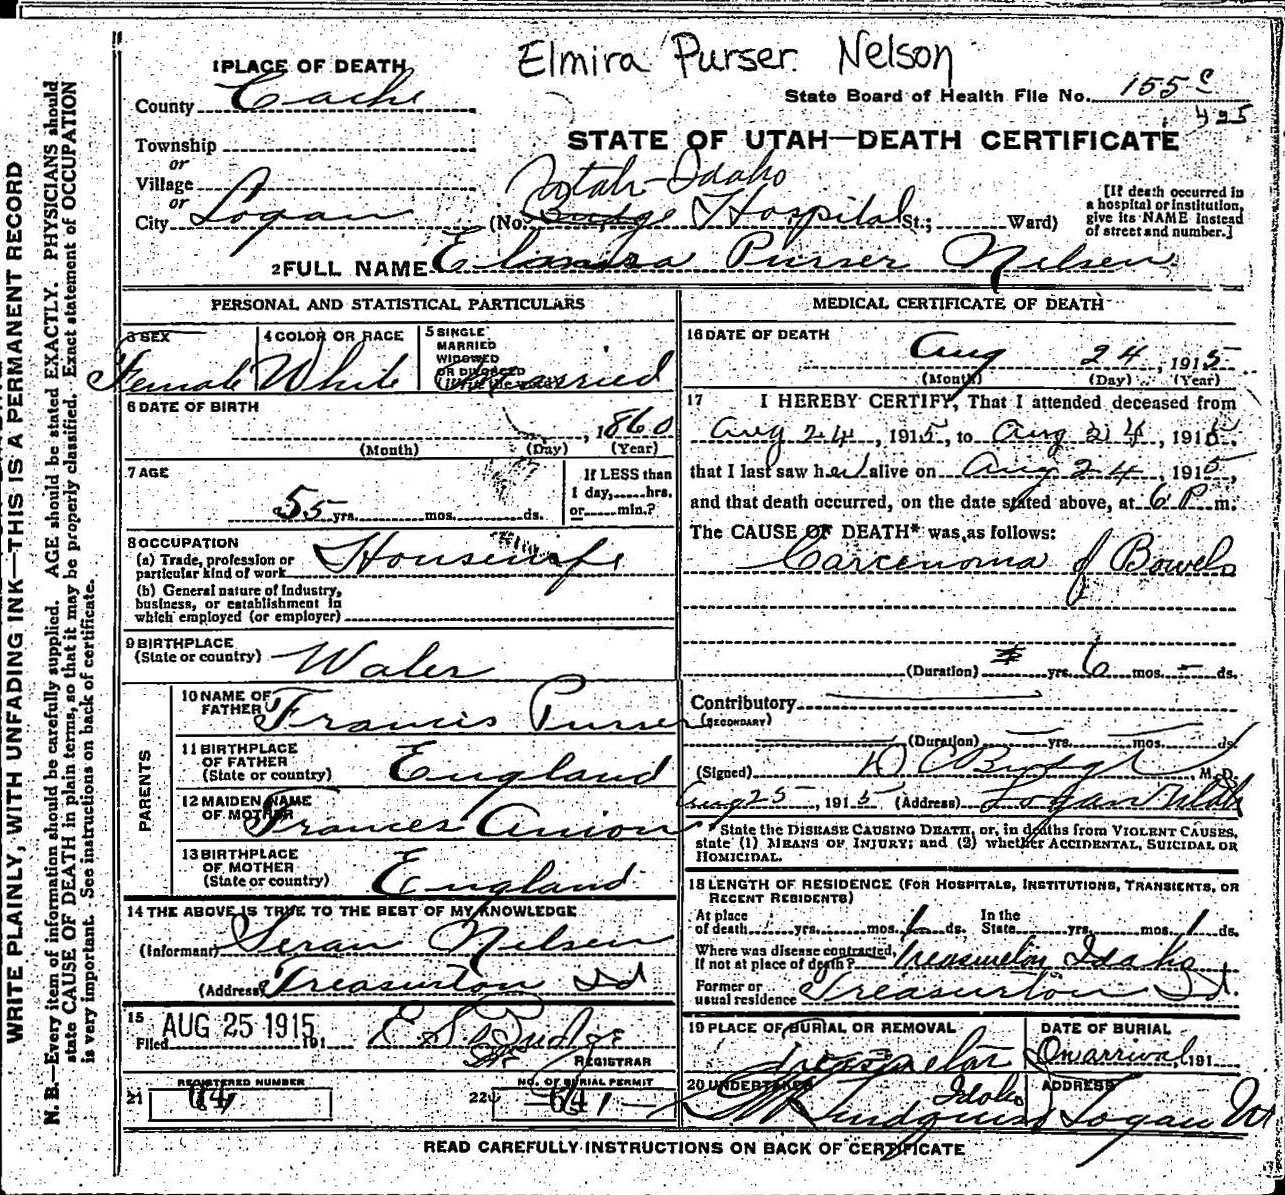 Elmira Purser Nelson
1 PLACE OF DEATH
County Cache
State Board of Health File No. 155 c
425
STATE OF UTAH—DEATH CERTIFICATE
Township
or
Village
or
City Logan
Utah-Idaho
(No. Budge Hospital St.; Ward)
[If death occurred in
a hospital or institution,
give its NAME instead
of street and number.]
2 FULL NAME Elmira Purser Nelsen
PERSONAL AND STATISTICAL PARTICULARS
3 SEX
Female
4 COLOR OR RACE
White
5 SINGLE
MARRIED
WIDOWED
OR DIVORCED
(Write the word)
Married
6 DATE OF BIRTH
, 1860
(Month) (Day) (Year)
7 AGE
55 yrs. mos. ds.
If LESS than
1 day, hrs.
or min.?
8 OCCUPATION
(a) Trade, profession or
particular kind of work Housewife
(b) General nature of Industry,
business, or establishment in
which employed (or employer)
9 BIRTHPLACE
(State or country) Wales
PARENTS
10 NAME OF
FATHER Francis Purser
11 BIRTHPLACE
OF FATHER
(State or country) England
12 MAIDEN NAME
OF MOTHER Frances Anion
13 BIRTHPLACE
OF MOTHER
(State or country) England
14 THE ABOVE IS TRUE TO THE BEST OF MY KNOWLEDGE
(Informant) Seran Nelsen
(Address) Treasurton Id
15
Filed AUG 25 1915 191
E S Budge
REGISTRAR
21 REGISTERED NUMBER
22 NO. OF BURIAL PERMIT
64
MEDICAL CERTIFICATE OF DEATH
16 DATE OF DEATH
Aug 24, 1915
(Month) (Day) (Year)
17 I HEREBY CERTIFY, That I attended deceased from
Aug 24, 1915, to Aug 24, 1915,
that I last saw her alive on Aug 24, 1915,
and that death occurred, on the date stated above, at 6 P m.
The CAUSE OF DEATH* was as follows:
Carcenoma of Bowels
(Duration) yrs. 6 mos. - ds.
Contributory
(SECONDARY)
(Duration) yrs. mos. ds.
(Signed) D C Budge, M. D.
Aug 25, 1915 (Address) Logan Utah
*State the DISEASE CAUSING DEATH, or, in deaths from VIOLENT CAUSES,
state (1) MEANS OF INJURY; and (2) whether ACCIDENTAL, SUICIDAL OR
HOMICIDAL.
18 LENGTH OF RESIDENCE (FOR HOSPITALS, INSTITUTIONS, TRANSIENTS, OR
RECENT RESIDENTS)
At place
of death yrs. mos. 1 ds. In the
State yrs. mos. 1 ds.
Where was disease contracted,
If not at place of death? Treasureton Idaho
Former or
usual residence Treasurton Id.
19 PLACE OF BURIAL OR REMOVAL
Treasureton
Idaho
DATE OF BURIAL
On arrival, 191
20 UNDERTAKER
Lindquist
ADDRESS
Logan Ut
READ CAREFULLY INSTRUCTIONS ON BACK OF CERTIFICATE
WRITE PLAINLY, WITH UNFADING INK—THIS IS A PERMANENT RECORD
N. B.—Every item of information should be carefully supplied. AGE should be stated EXACTLY. PHYSICIANS should
state CAUSE OF DEATH in plain terms, so that it may be properly classified. Exact statement of OCCUPATION
is very important. See instructions on back of certificate.